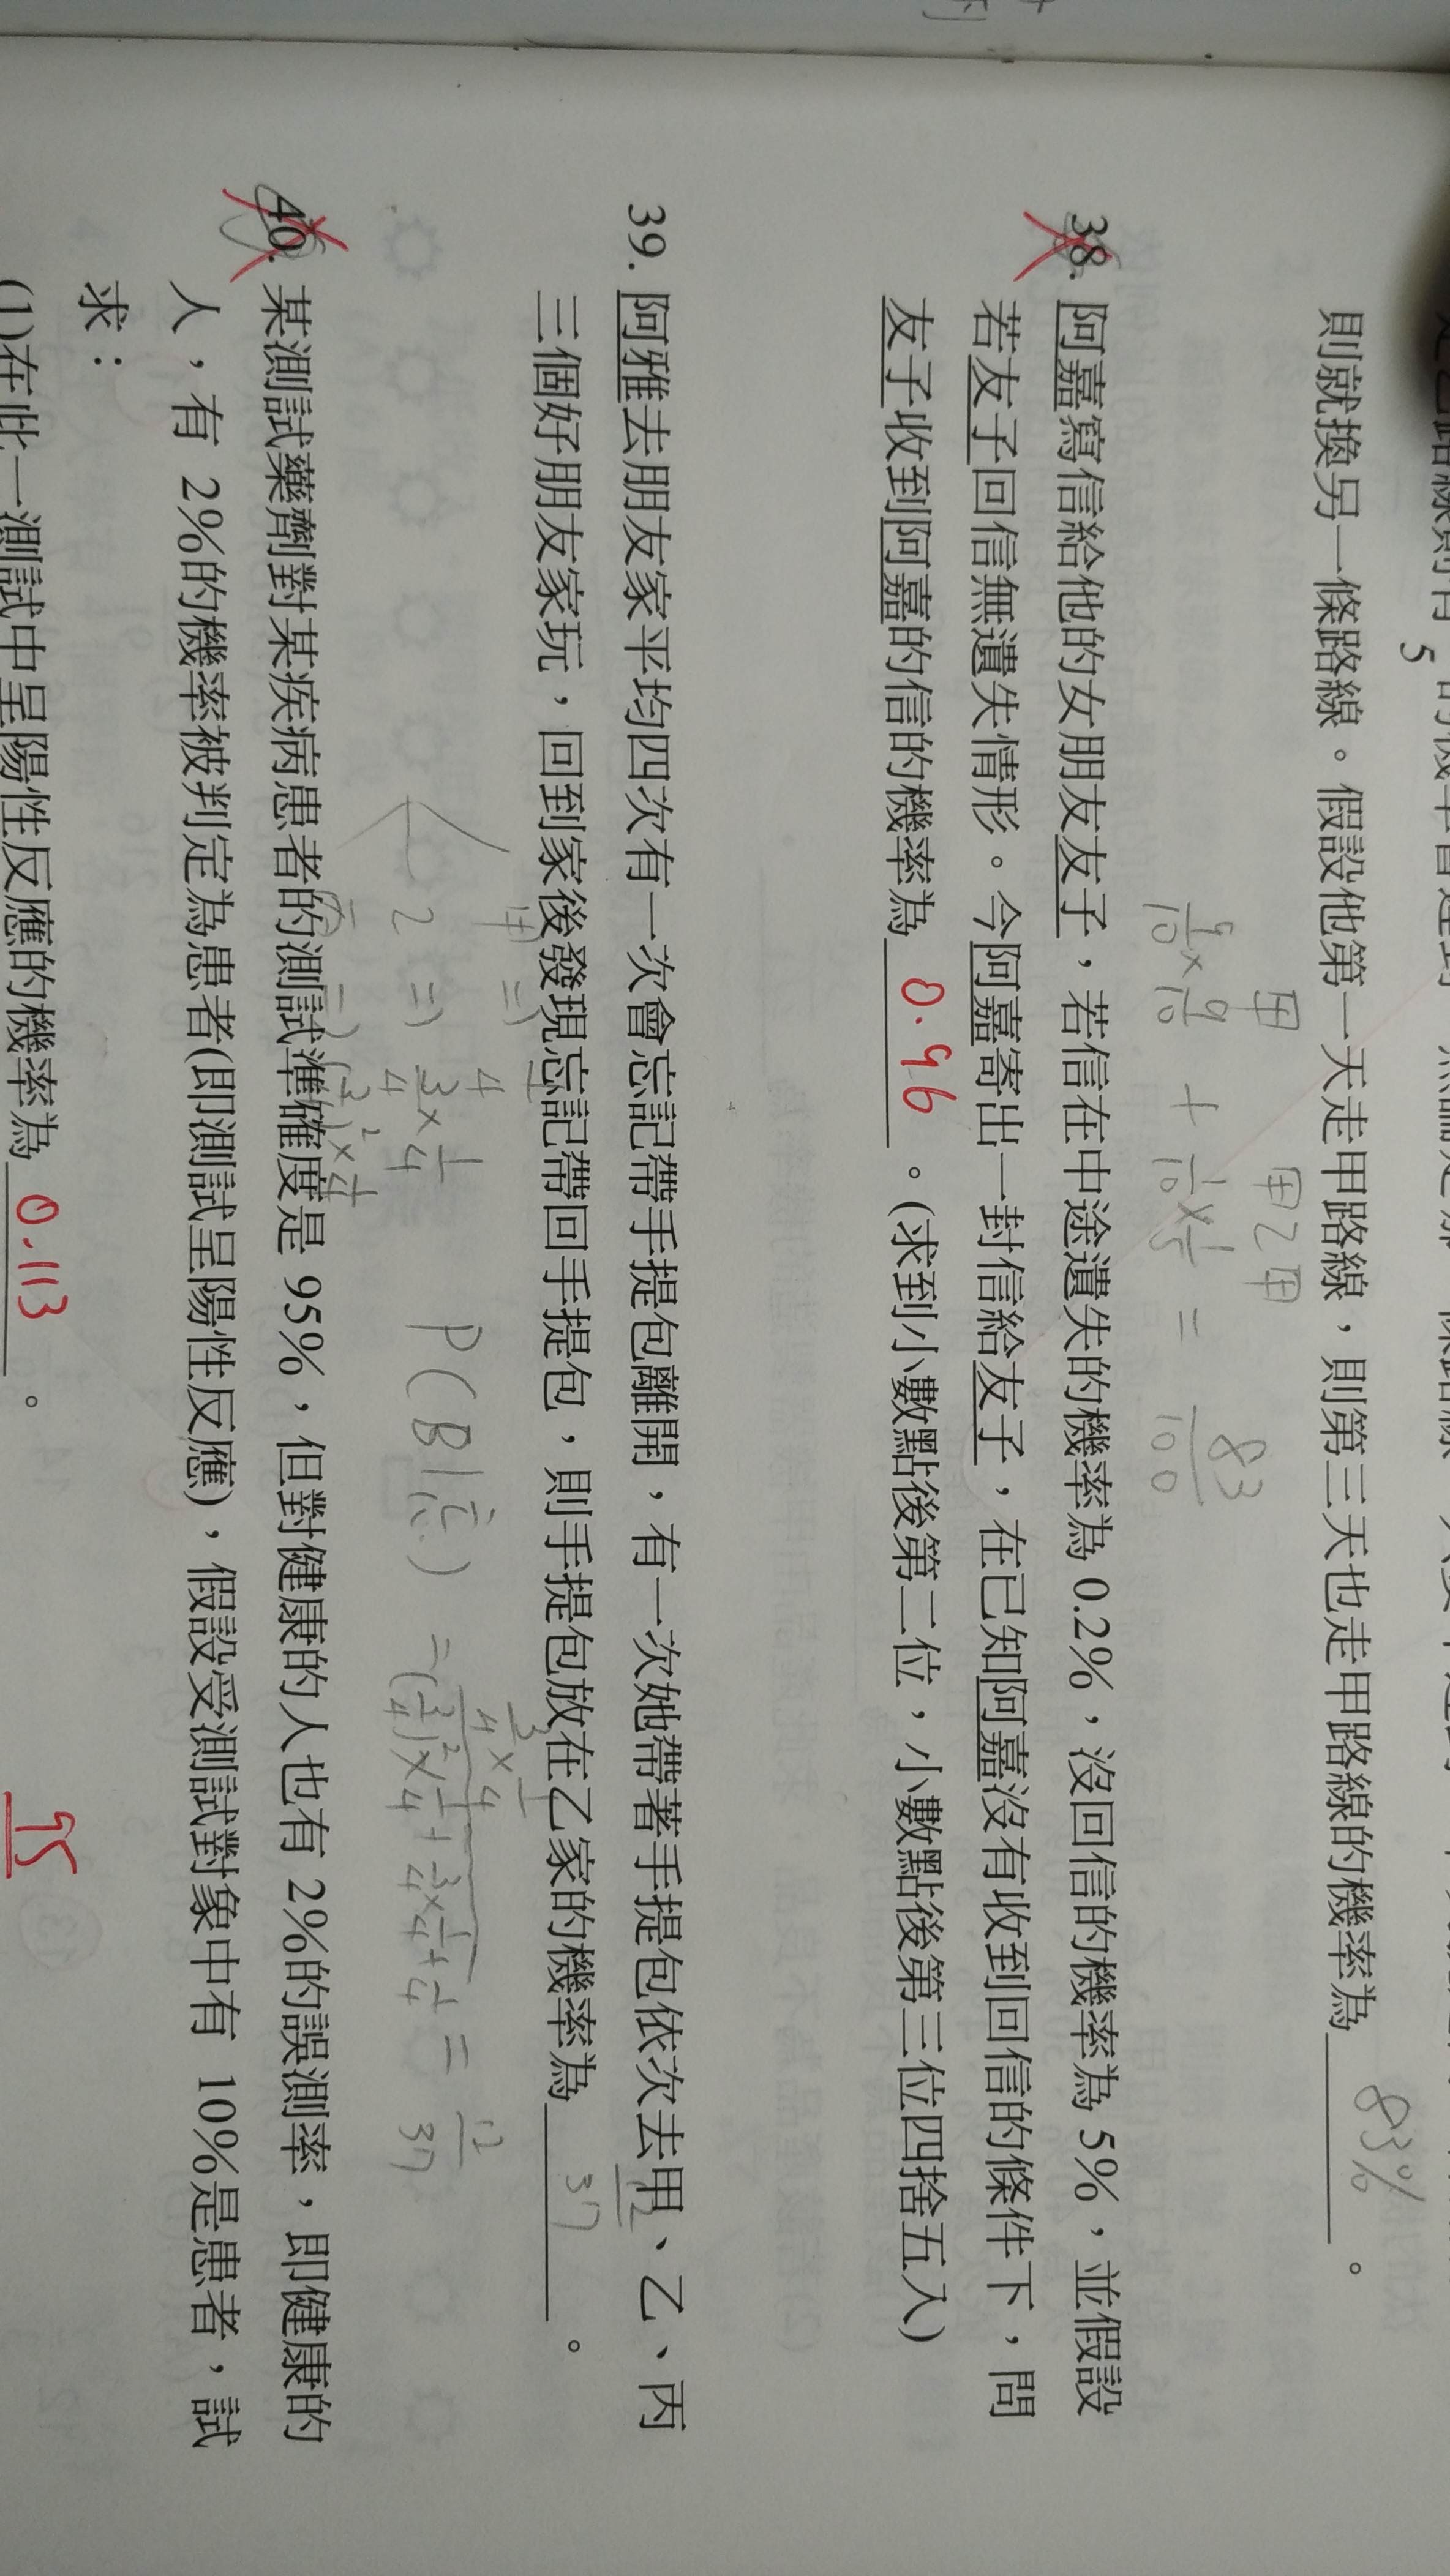 則就換另一條路線。假設他第一天走甲路線，則第三天也走甲路線的機率為 83% 。
甲 甲乙甲
9/10 × 9/10 + 1/10 × 1/5 = 83/100
38. 阿嘉寫信給他的女朋友友子，若信在中途遺失的機率為 0.2%，沒回信的機率為 5%，並假設
若友子回信無遺失情形。今阿嘉寄出一封信給友子，在已知阿嘉沒有收到回信的條件下，問
友子收到阿嘉的信的機率為 0.96 。(求到小數點後第二位，小數點後第三位四捨五入)
39. 阿雅去朋友家平均四次有一次會忘記帶手提包離開，有一次她帶著手提包依次去甲、乙、丙
三個好朋友家玩，回到家後發現忘記帶回手提包，則手提包放在乙家的機率為 12/37 。
甲 ⇒ 1/4
乙 ⇒ 3/4 × 1/4
丙 ⇒ (3/4)² × 1/4
P(B|忘) = (3/4 × 1/4) / ((3/4)² × 1/4 + 3/4 × 1/4 + 1/4) = 12/37
40. 某測試藥劑對某疾病患者的測試準確度是 95%，但對健康的人也有 2%的誤測率，即健康的
人，有 2%的機率被判定為患者(即測試呈陽性反應)，假設受測試對象中有 10%是患者，試
求：
(1)在此一測試中呈陽性反應的機率為 0.113 。
95